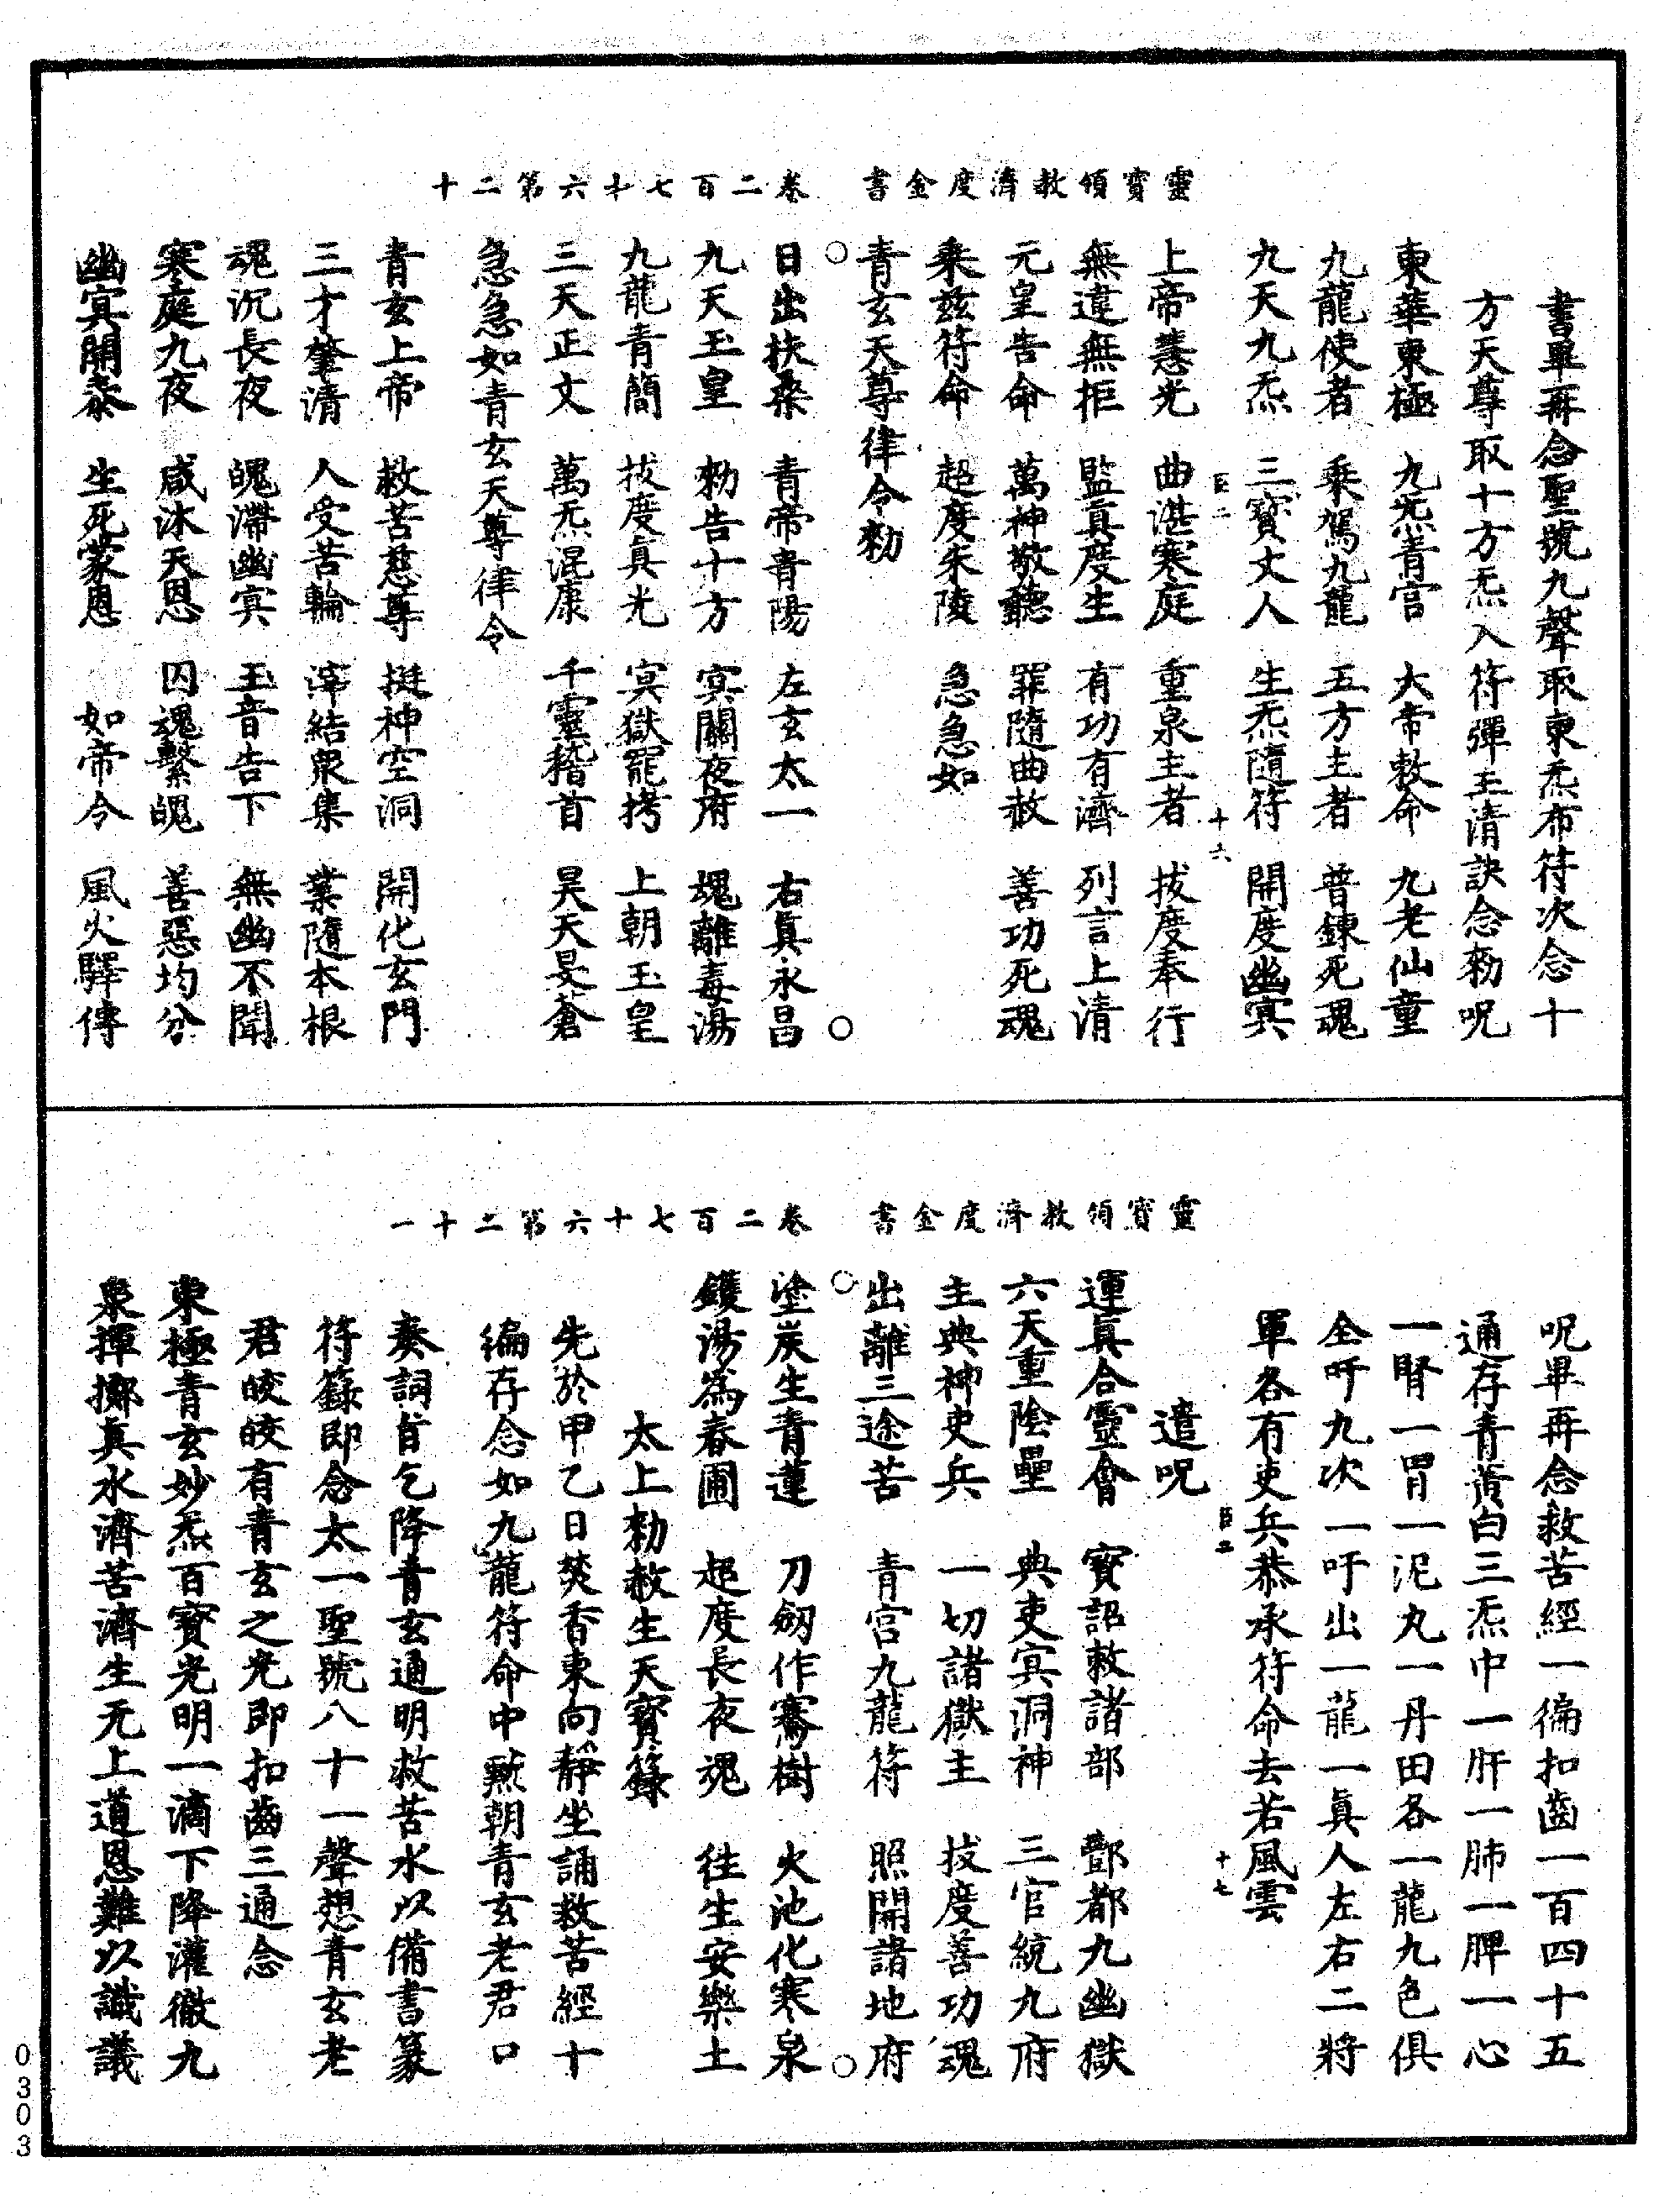 靈寶領教濟度金書　卷二百七十六第二十
書畢再念聖號九聲取東炁布符次念十
方天尊取十方炁入符彈玉清訣念勑呪
東華東極　九炁青宮　大帝敕命　九老仙童
九龍使者　乘駕九龍　五方主者　普鍊死魂
九天九炁　三寶丈人　生炁隨符　開度幽冥
臣二　十六
上帝慧光　曲湛寒庭　重泉主者　拔度奉行
無違無拒　監真度生　有功有濟　列言上清
元皇告命　萬神敬聽　罪隨曲赦　善功死魂
乘兹符命　超度朱陵　急急如
青玄天尊律令勑
○　○
日出扶桑　青帝青陽　左玄太一　右真永昌
九天玉皇　勑告十方　冥關夜府　魂離毒湯
九龍青簡　拔度真光　冥獄罷拷　上朝玉皇
三天正文　萬炁混康　千靈稽首　昊天旻蒼
急急如青玄天尊律令
青玄上帝　救苦慈尊　挺神空洞　開化玄門
三才肇清　人受苦輪　滓結眾集　業隨本根
魂沉長夜　魄滯幽冥　玉音告下　無幽不聞
寒庭九夜　咸沐天恩　囚魂繫魄　善惡均分
幽冥開泰　生死蒙恩　如帝令　風火驛傳
靈寶領教濟度金書　卷二百七十六第二十一
呪畢再念救苦經一徧扣齒一百四十五
通存青黃白三炁中一肝一肺一脾一心
一腎一胃一泥丸一丹田各一龍九色俱
全吁九次一吁出一龍一真人左右二將
軍各有吏兵恭承符命去若風雲
臣二　十七
遣呪
運真合靈會　寶詔敕諸部　酆都九幽獄
六天重陰壘　典吏冥洞神　三官統九府
主典神吏兵　一切諸獄主　拔度善功魂
出離三途苦　青宮九龍符　照開諸地府
○　○
塗炭生青蓮　刀劒作騫樹　火池化寒泉
鑊湯為春圃　超度長夜魂　往生安樂土
太上勑赦生天寶籙
先於甲乙日焚香東向靜坐誦救苦經十
徧存念如九龍符命中默朝青玄老君口
奏詞旨乞降青玄通明救苦水以備書篆
符籙即念太一聖號八十一聲想青玄老
君皎皎有青玄之光即扣齒三通念
東極青玄妙炁百寶光明一滴下降灌徹九
泉揮擲真水濟苦濟生元上道恩難以識議
0303